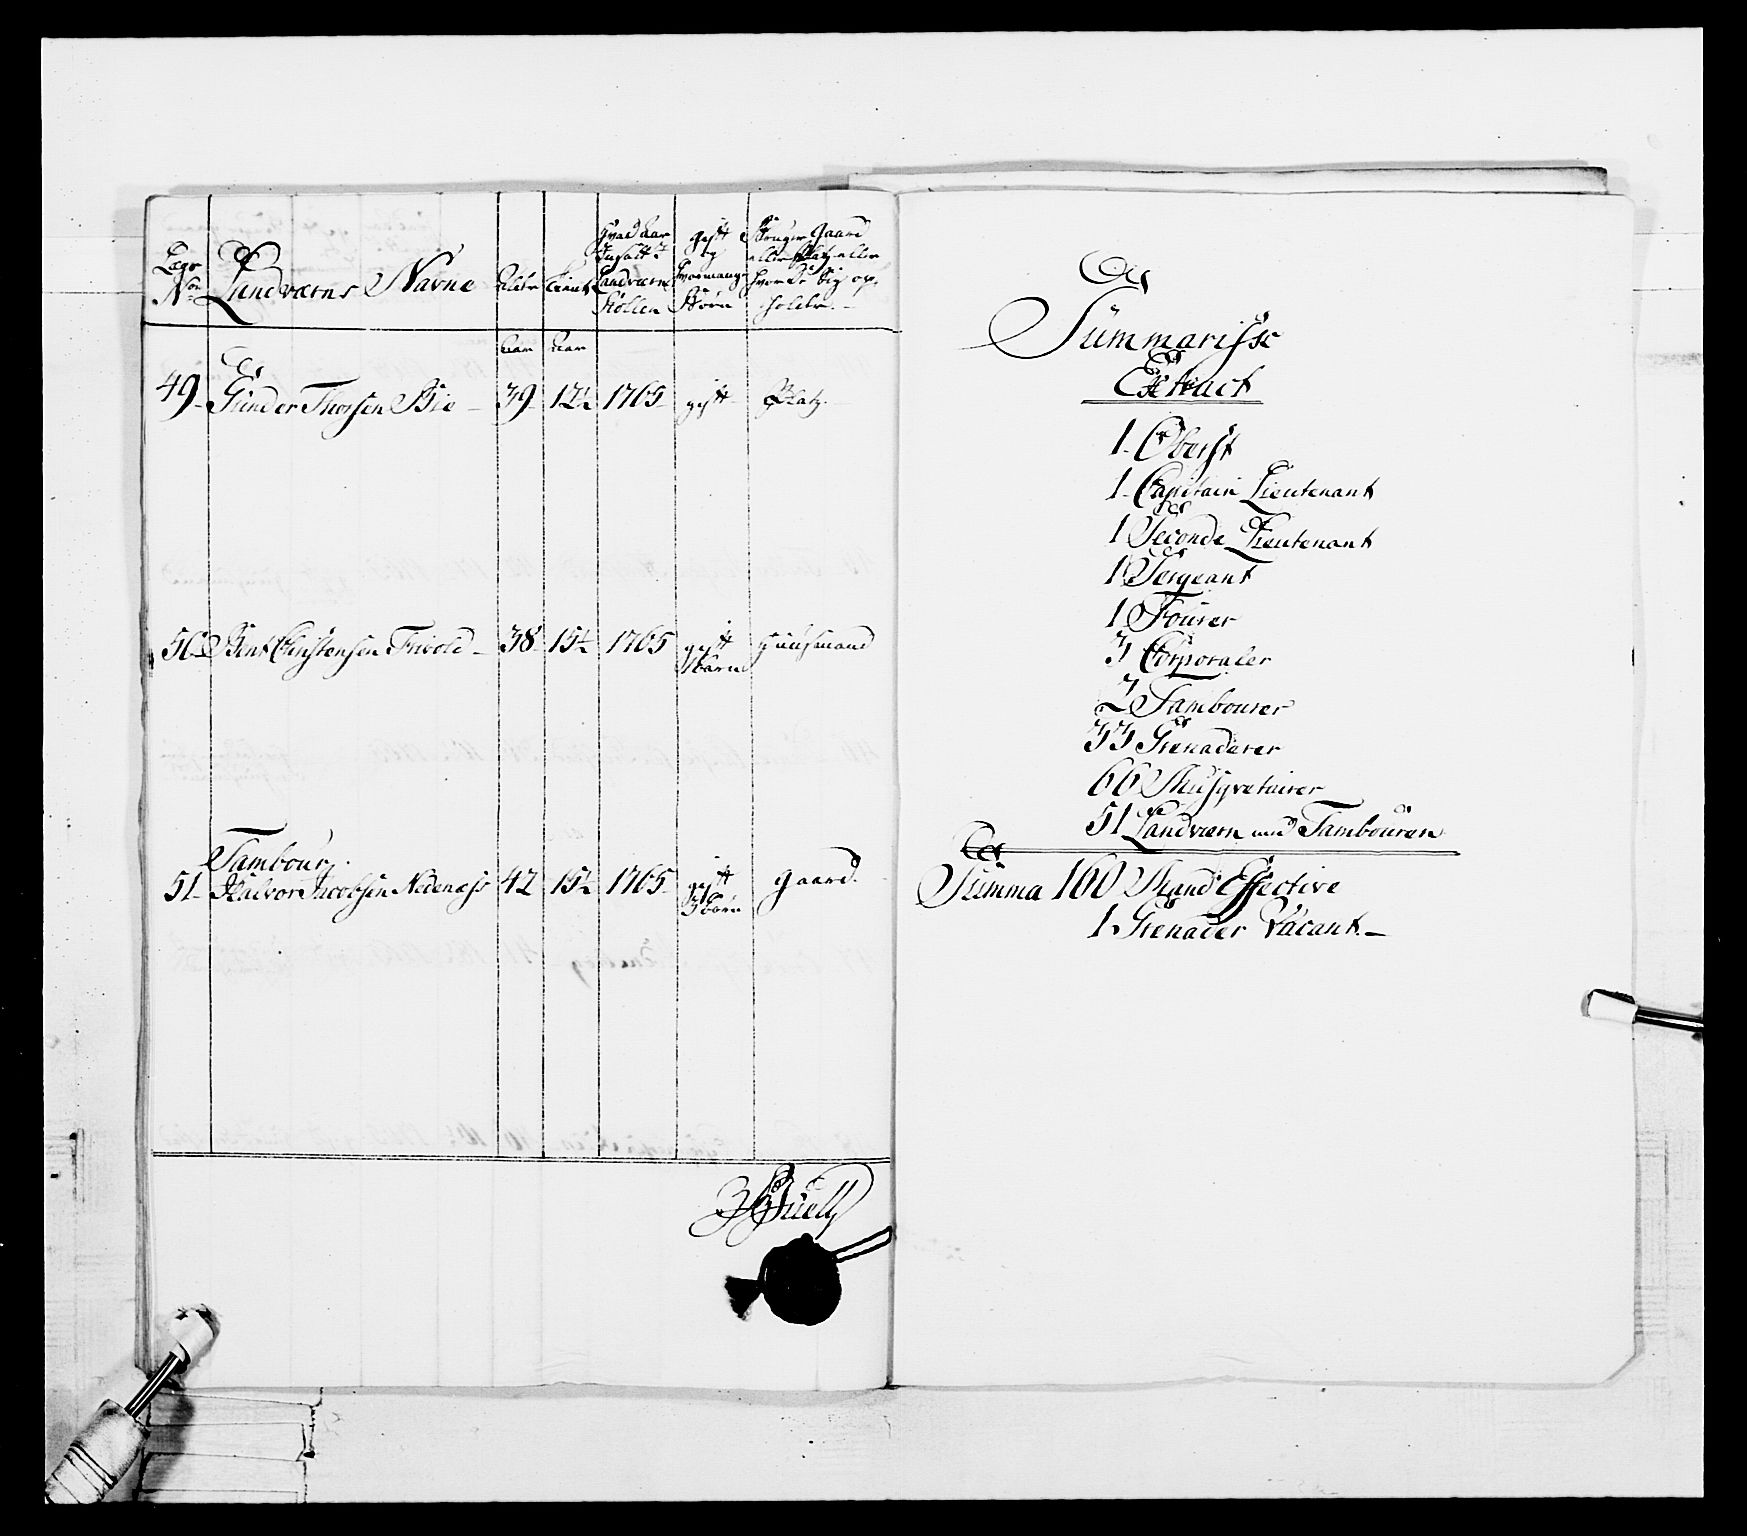 Lægs No
Landværns Navne
Alder
tient
Hvad Aar Indsatt i Landværns Rollen
gift og hvormange Børn
Bruger Gaard eller Platz eller hvor de sig opholder
Aar Aar
49 Gunder Thorsen Bie 39 12½ 1765 gift Platz
50 Bent Christensen Frivold 38 15½ 1765 gift Huusmand
Børn
Tambour
51 Halvor Jacobsen Nedenæss 42 15½ 1765 gift gaard
Børn
Summarisk
Extract
1 Oberst
1 Capitain Lieutenant
1 Seconde Lieutenant
1 Sergeant
1 Fourer
3 Corporaler
2 Tambourer
33 Grenaderer
66 Musqvetairer
51 Landværn med Tambouren
Summa 160 Mand Effective
1 Grenader Vacant